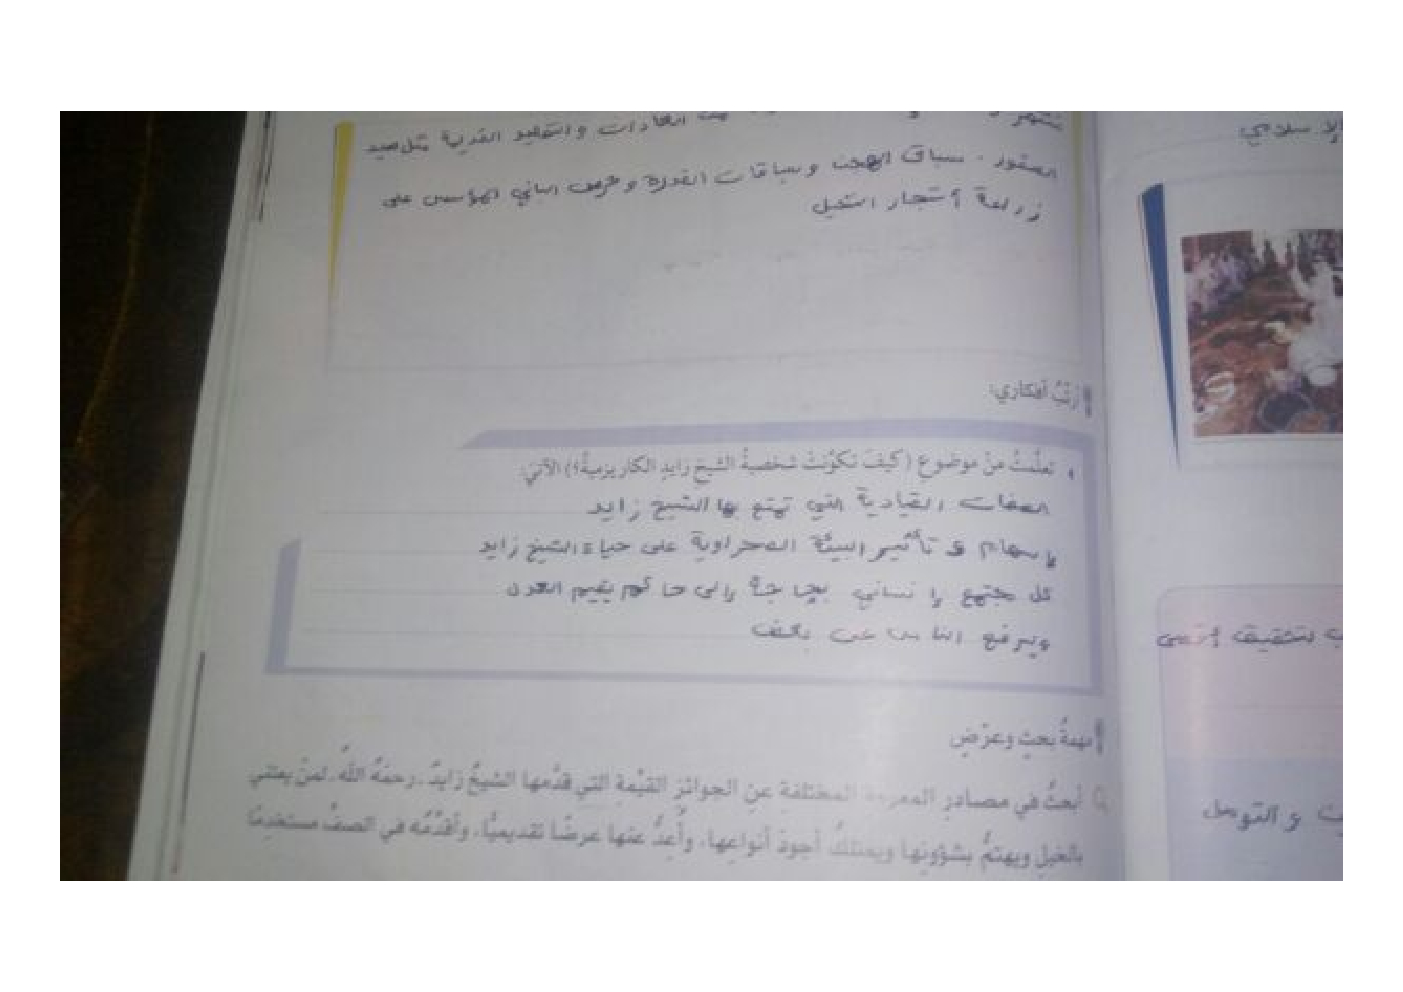 العادات والتقليد القديمة مثل صيد
الصقور . سباق الهجن وسباقات القدرة وحرص الباني المؤسس على
زراعة أشجار النخيل
أرتب أفكاري:
تعلّمتُ منْ موضوعِ (كيفَ تكوّنتْ شخصيةُ الشيخِ زايدٍ الكاريزميةُ؟) الآتيَ:
الصفات القيادية التي تمتع بها الشيخ زايد
إسهام و تأثير البيئة الصحراوية على حياة الشيخ زايد
كل مجتمع إنساني بحاجة إلى حاكم يقيم العدل
ويرفع الناس
مهمةُ بحثٍ وعرْضٍ
أبحثُ في مصادرِ المعرفةِ المختلفةِ عنِ الجوائزِ القيّمةِ التي قدّمها الشيخُ زايدٌ، رحمَهُ اللهُ، لمنْ يعتني
بالخيلِ ويهتمُّ بشؤونِها ويمتلكُ أجودَ أنواعِها، وأُعِدُّ عنها عرضًا تقديميًّا، وأقدّمُه في الصفِّ مستخدمًا
الإسلامي
لتحقيق أقصى
والتوصل